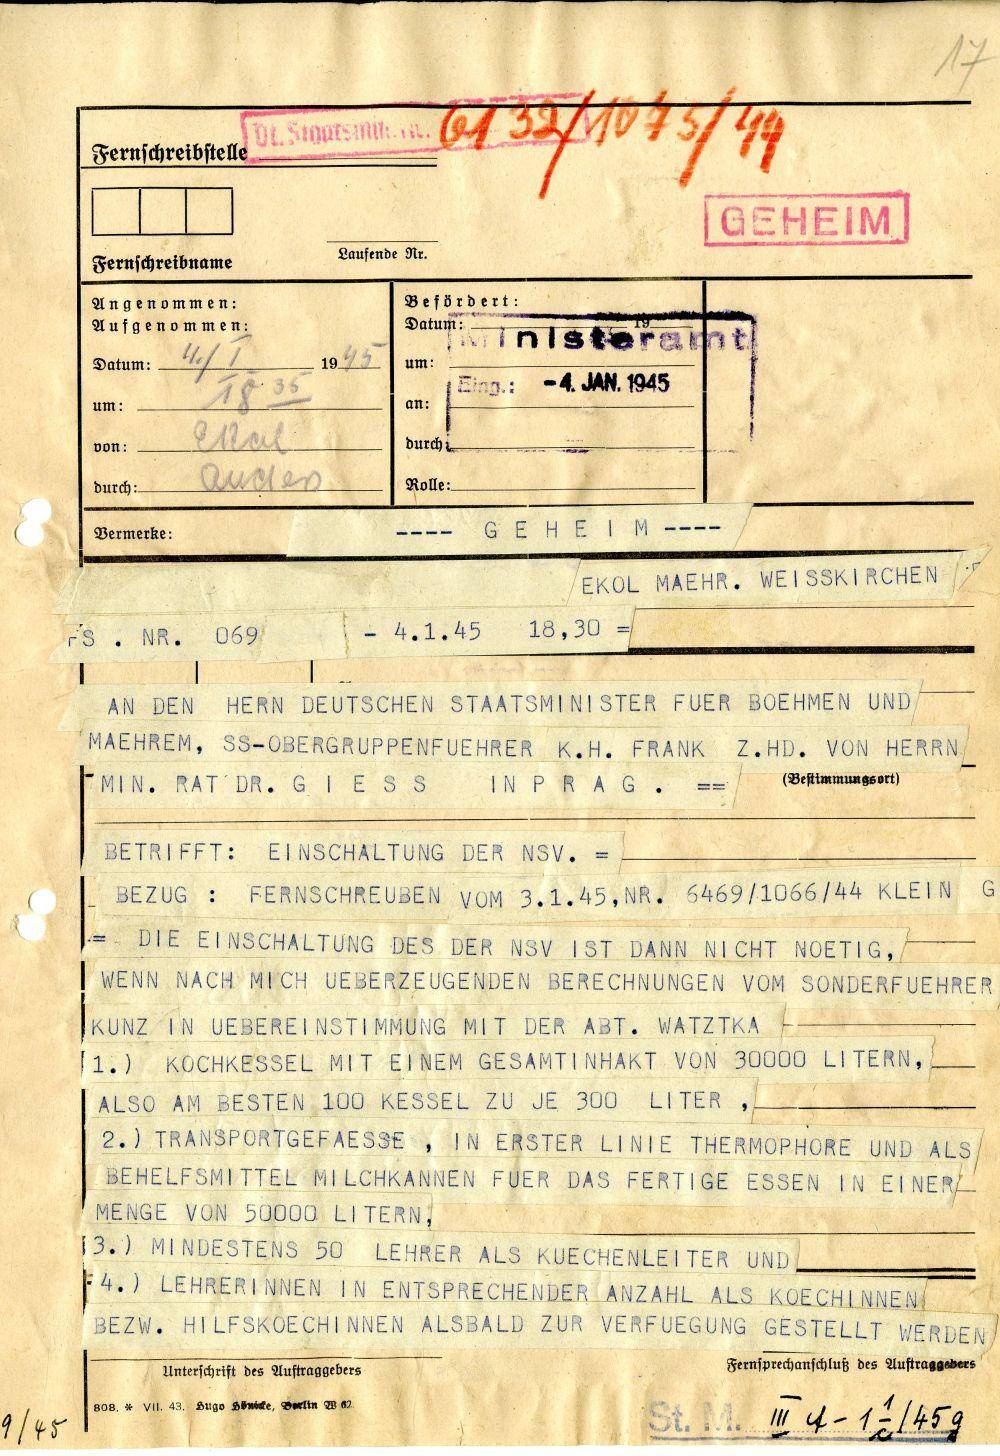 17
Dt. Staatsmin.
6132/1075/44
Fernschreibstelle
GEHEIM
Laufende Nr.
Fernschreibname
Angenommen:
Aufgenommen:
Datum: 4./I 1945
um: 18 35
von: Ekol
durch:
Befördert:
Datum: 19
um:
an:
durch:
Rolle:
Ministeramt
Eing.: -4. JAN. 1945
Vermerke:
---- G E H E I M ----
EKOL MAEHR. WEISSKIRCHEN
FS . NR. 069 - 4.1.45 18,30 =
AN DEN HERN DEUTSCHEN STAATSMINISTER FUER BOEHMEN UND
MAEHREM, SS-OBERGRUPPENFUEHRER K.H. FRANK Z.HD. VON HERRN
MIN. RAT DR. G I E S S IN P R A G . ==
(Bestimmungsort)
BETRIFFT: EINSCHALTUNG DER NSV. =
BEZUG : FERNSCHREUBEN VOM 3.1.45,NR. 6469/1066/44 KLEIN G
= DIE EINSCHALTUNG DES DER NSV IST DANN NICHT NOETIG,
WENN NACH MICH UEBERZEUGENDEN BERECHNUNGEN VOM SONDERFUEHRER
KUNZ IN UEBEREINSTIMMUNG MIT DER ABT. WATZTKA
1.) KOCHKESSEL MIT EINEM GESAMTINHAKT VON 30000 LITERN,
ALSO AM BESTEN 100 KESSEL ZU JE 300 LITER ,
2.) TRANSPORTGEFAESSE , IN ERSTER LINIE THERMOPHORE UND ALS
BEHELFSMITTEL MILCHKANNEN FUER DAS FERTIGE ESSEN IN EINER
MENGE VON 50000 LITERN,
3.) MINDESTENS 50 LEHRER ALS KUECHENLEITER UND
4.) LEHRERINNEN IN ENTSPRECHENDER ANZAHL ALS KOECHINNEN
BEZW. HILFSKOECHINNEN ALSBALD ZUR VERFUEGUNG GESTELLT WERDEN
Unterschrift des Auftraggebers
Fernsprechanschluß des Auftraggebers
808. * VII. 43. Hugo Hönicke, Berlin W 62
9/45
St. M. III